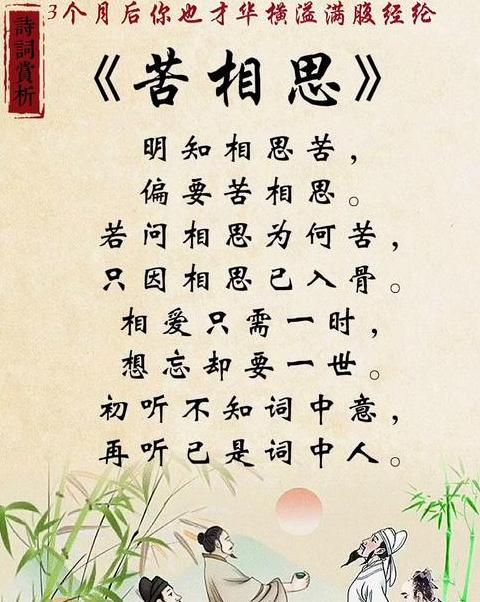 詩詞賞析
3个月后你也才华横溢满腹经纶
《苦相思》
明知相思苦，
偏要苦相思。
若问相思为何苦，
只因相思已入骨。
相爱只需一时，
想忘却要一世。
初听不知词中意，
再听已是词中人。